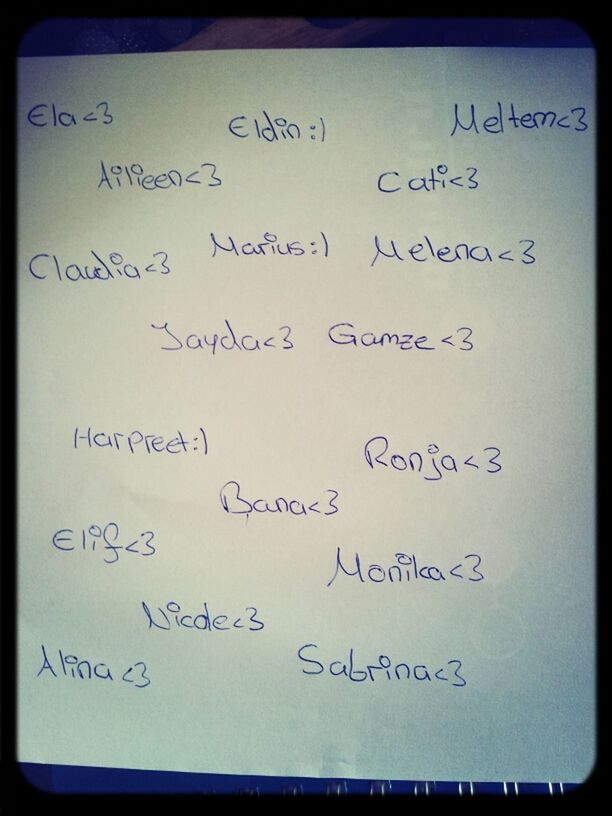 Ela<3 Eldin:) Meltem<3
Ailieen<3 Cati<3
Claudia<3 Marius:) Melena<3
Jayda<3 Gamze<3
Harpreet:) Ronja<3
Bana<3
Elif<3 Monika<3
Nicole<3
Alina<3 Sabrina<3